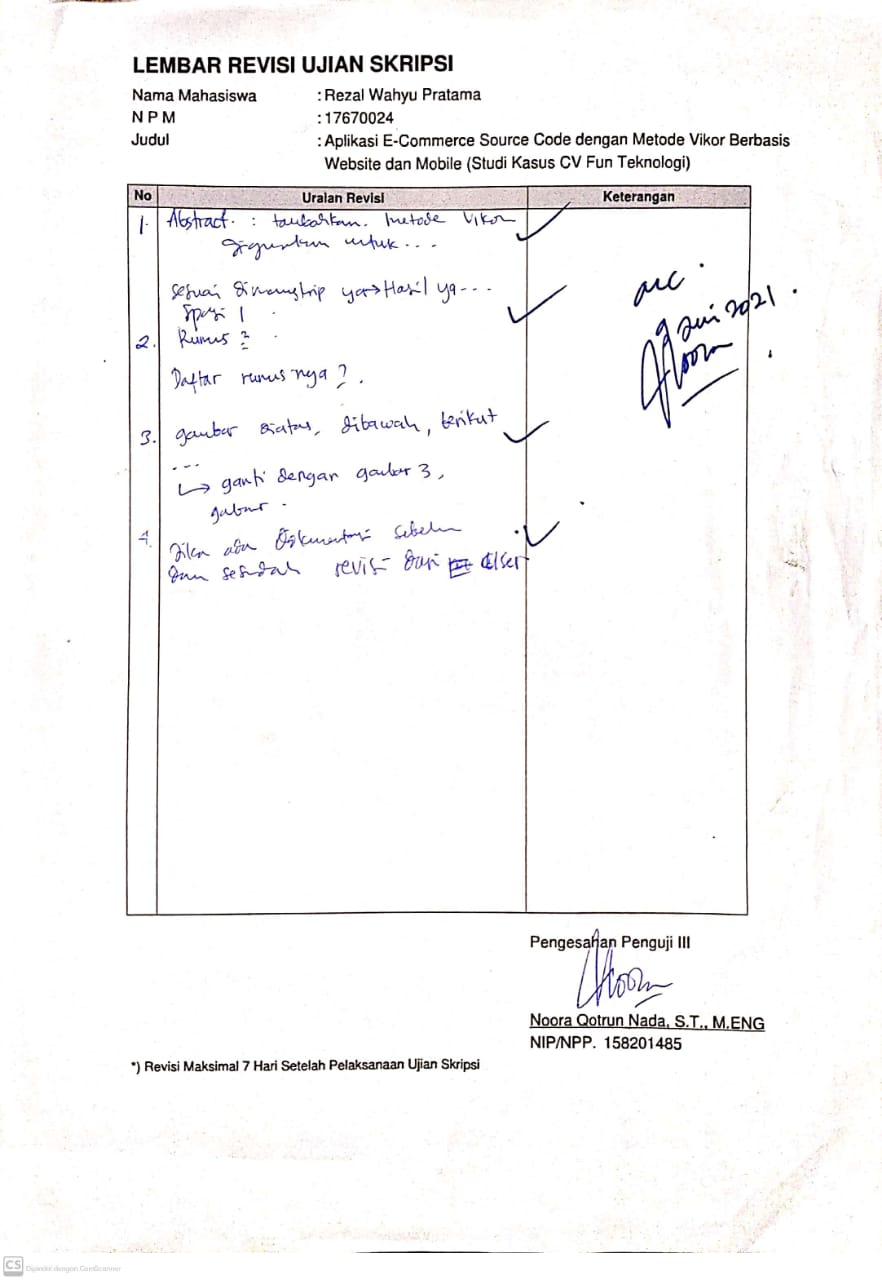 LEMBAR REVISI UJIAN SKRIPSI
Nama Mahasiswa : Rezal Wahyu Pratama
N P M : 17670024
Judul : Aplikasi E-Commerce Source Code dengan Metode Vikor Berbasis
Website dan Mobile (Studi Kasus CV Fun Teknologi)
No Uraian Revisi Keterangan
1. Abstract : tambahkan metode Vikor
digunakan untuk...
sesuai yg → Hasil yg...
Spasi 1
2. Rumus ?
Daftar rumusnya ?
3. gambar diatas, dibawah, berikut
...
↳ ganti dengan gambar 3,
gambar
4. Jika ada Dokumentasi sebelum
dan sesudah revisi dari User
acc
9 Juni 2021
Pengesahan Penguji III
Noora Qotrun Nada, S.T., M.ENG
NIP/NPP. 158201485
*) Revisi Maksimal 7 Hari Setelah Pelaksanaan Ujian Skripsi
CS Dipindai dengan CamScanner